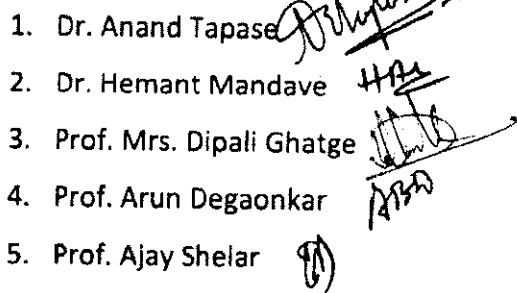 1. Dr. Anand Tapase
2. Dr. Hemant Mandave
3. Prof. Mrs. Dipali Ghatge
4. Prof. Arun Degaonkar ABD
5. Prof. Ajay Shelar